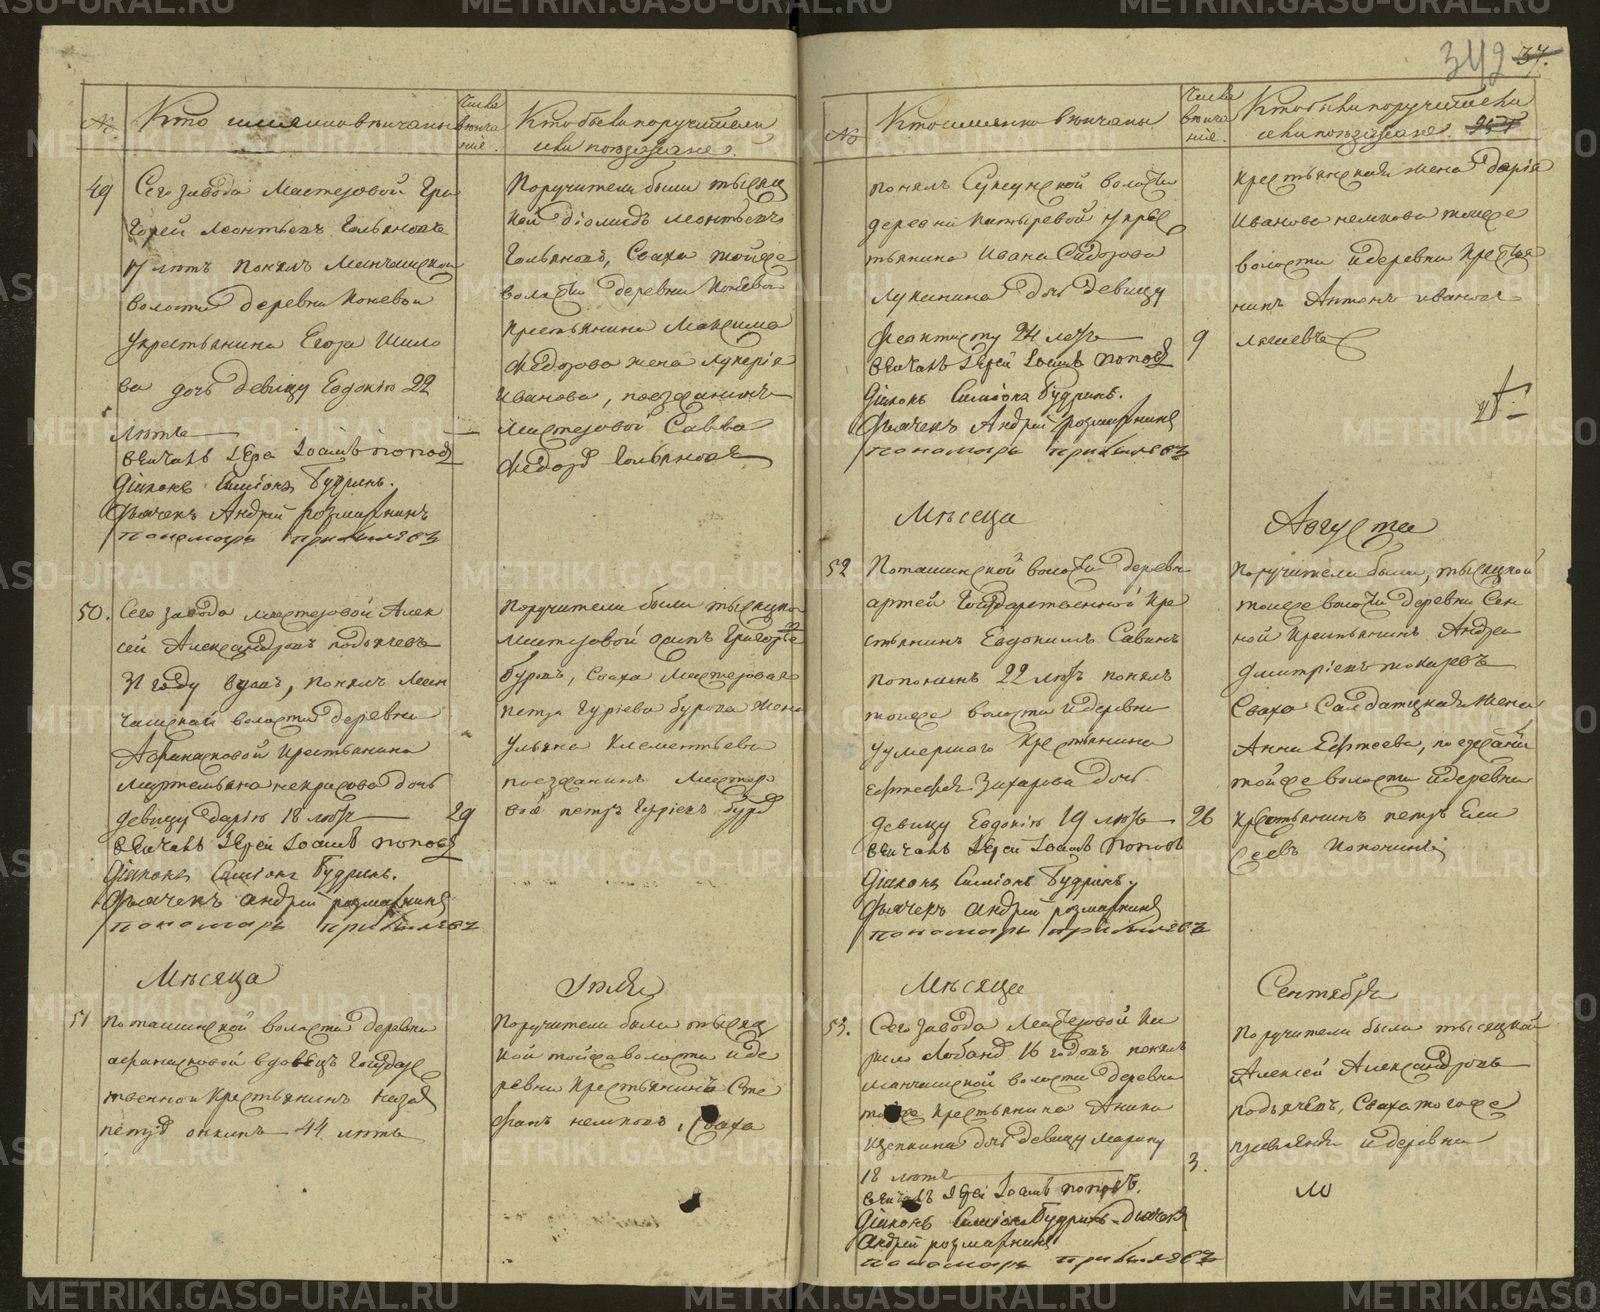 №
Кто имянно венчаны
Числа
венча
ния.
Кто были поручители
или поезжане.
49
Сего завода Мастеровой Гри
горей Леонтьевъ Гольяновъ
17 летъ понялъ Манчажской
волости деревни Коневой
у крестьянина Егора Шило
ва дочь девицу Евдокію 22
летъ
венчалъ Іерей Іоаннъ Попов
Діаконъ Симіонъ Будринъ.
Дьячекъ Андрей Розмарицынъ
пономарь
Поручители были тысяц
кой Діомидъ Леонтьевъ
Гольяновъ, Сваха тойже
волости деревни Коневой
крестьянина Максима
Федорова жена Лукерія
Иванова, поезжанинъ
мастеровой Савва
Федоров Гольяновъ
50.
Сего завода мастеровой Алек
сей Александровъ подьячевъ
31 году вдовъ, понялъ Ман
чажской волости деревни
крестьянина
Мартемьяна Некрасова дочь
девицу Дарію 18 летъ
29
венчалъ Іерей Іоаннъ Попов
Діаконъ Симіонъ Будринъ.
Дьячекъ Андрей Розмарицынъ
пономарь
Поручители были тысяцко
Мастеровой Осипъ Григорье
Буровъ, Сваха Мастероваго
Петра Гуріева Бурова жена
Ульяна Клементьева
поезжанинъ Мастеро
вой Петръ Гуріевъ Буров
Месяца
Іюля
51
Поташинской волости деревни
вдовецъ Государс
твенной крестьянинъ Назар
Петров 44 летъ
Поручители были тысяц
кой тойже волости и де
ревни крестьянинъ Сте
фанъ Немковъ, Сваха
342
37.
№
Кто имянно венчаны
Числа
венча
ния.
Кто были поручители
или поезжане.
понялъ Суксунской волости
деревни у крес
тьянина Ивана Сидорова
Лукинина дочь девицу
Феоктисту 24 летъ
9
венчалъ Іерей Іоаннъ Попов
Діаконъ Симіонъ Будринъ.
Дьячекъ Андрей Розмарицынъ
пономарь
крестьянская жена Дарія
Иванова Немкова тоеже
волости и деревни крестья
нинъ Антонъ Иванов
Месяца
Августа
52
Поташинской волости деревни
Артей Государственной кре
стьянинъ Евдокимъ Савинъ
22 летъ понялъ
тоеже волости и деревни
у умершаго крестьянина
Захарова дочь
девицу Евдокію 19 летъ
26
венчалъ Іерей Іоаннъ Попов
Діаконъ Симіонъ Будринъ.
Дьячекъ Андрей Розмарицынъ
пономарь
Поручители были, тысяцкой
тоеже волости деревни Сен
ной крестьянинъ Андрей
Дмитріевъ Токаревъ
Сваха Салдатцкая жена
Анна поезжанин
тойже волости и деревни
крестьянинъ Петръ Ели
сеевъ
Месяца
Сентября
53.
Сего завода Мастеровой Ки
рило Лобанов 16 годовъ понялъ
Манчажской волости деревни
тоеже крестьянина Аника
Щепкина дочь девицу Марину
18 летъ
3.
венчалъ Іерей Іоаннъ Поповъ.
Діаконъ Симіонъ Будринъ Дьячекъ
Андрей Розмарицынъ
пономарь
Поручители были тысяцкой
Алексей Александровъ
Подьячевъ, Сваха тогоже
правленія и деревни